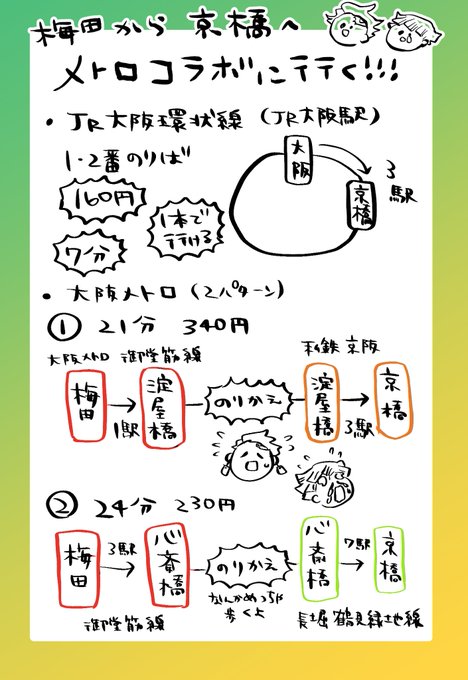 梅田から京橋へ
メトロコラボに行く!!!
・JR大阪環状線(JR大阪駅)
1・2番のりば
160円
1本で
行ける
7分
大阪
3駅
京橋
・大阪メトロ(2パターン)
① 21分 340円
大阪メトロ 御堂筋線
私鉄 京阪
梅田
1駅
淀屋橋
のりかえ
淀屋橋
3駅
京橋
② 24分 230円
梅田
3駅
心斎橋
のりかえ
なんかめっちゃ
歩くよ
心斎橋
7駅
京橋
御堂筋線
長堀鶴見緑地線